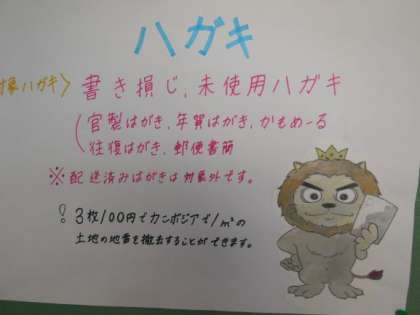 ハガキ
対象ハガキ＞ 書き損じ、未使用ハガキ
(官製はがき、年賀はがき、かもめーる
往復はがき、郵便書簡
※配送済みはがきは対象外です。
! 3枚100円でカンボジアで1m²の
土地の地雷を撤去することができます。